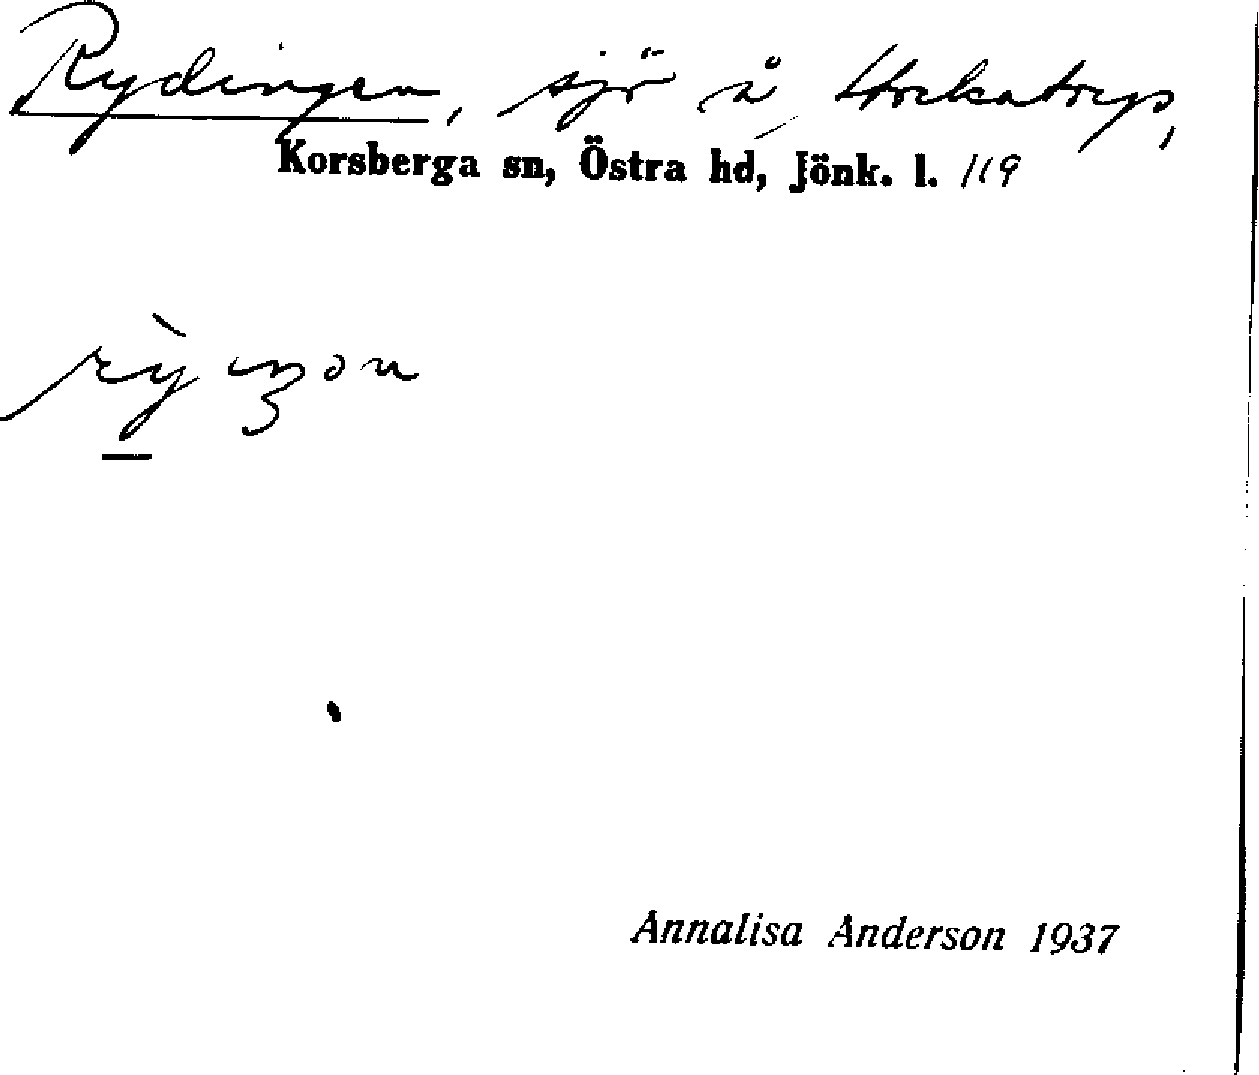 Rydingen, sjö å Stockatorp,
Korsberga sn, Östra hd, Jönk. l. 119
Annalisa Anderson 1937